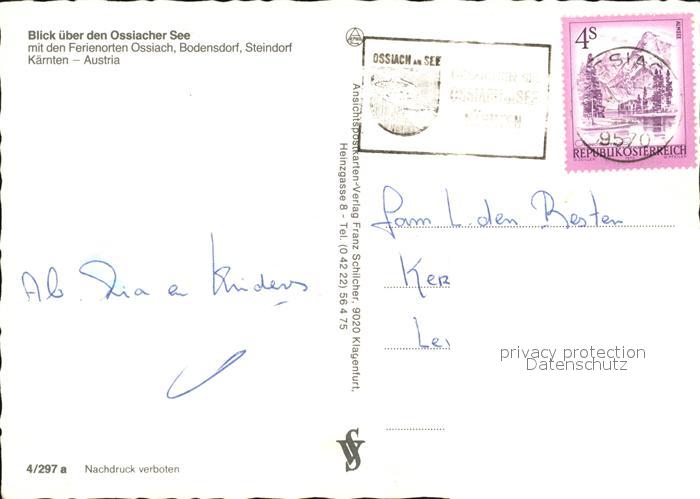 Blick über den Ossiacher See
mit den Ferienorten Ossiach, Bodensdorf, Steindorf
Kärnten – Austria
Ab. Ria en Kinders
4/297 a Nachdruck verboten
Ansichtspostkarten-Verlag Franz Schilcher, 9020 Klagenfurt,
Heinzgasse 8 - Tel. (0 42 22) 56 4 75
OSSIACH AM SEE
OSSIACH AM SEE
4S
ALMSEE
OSSIACH
9570
REPUBLIK ÖSTERREICH
Fam L. den Besten
Ker
Le
privacy protection
Datenschutz